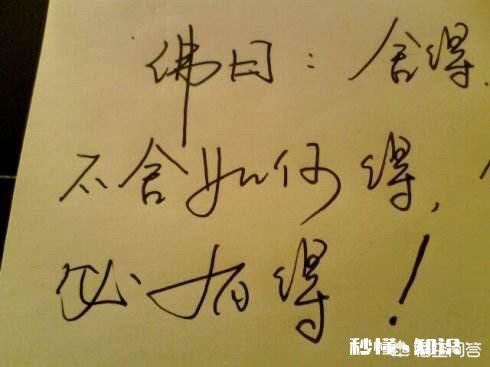 佛曰：舍得，
不舍如何得，
必有得！
秒懂·知识